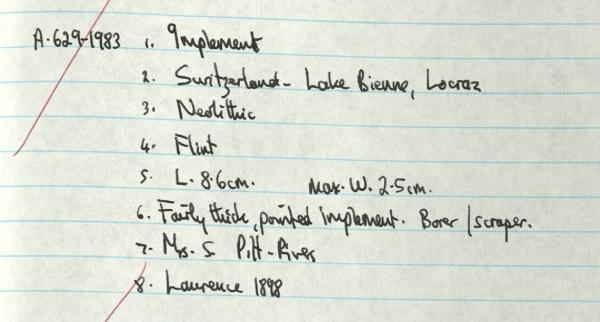 A.629-1983 1. Implement
2. Switzerland - Lake Bienne, Locraz
3. Neolithic
4. Flint
5. L. 8.6cm. Max. W. 2.5cm.
6. Fairly thick, pointed implement. Borer / scraper.
7. Mrs. S. Pitt-Rivers
8. Laurence 1898